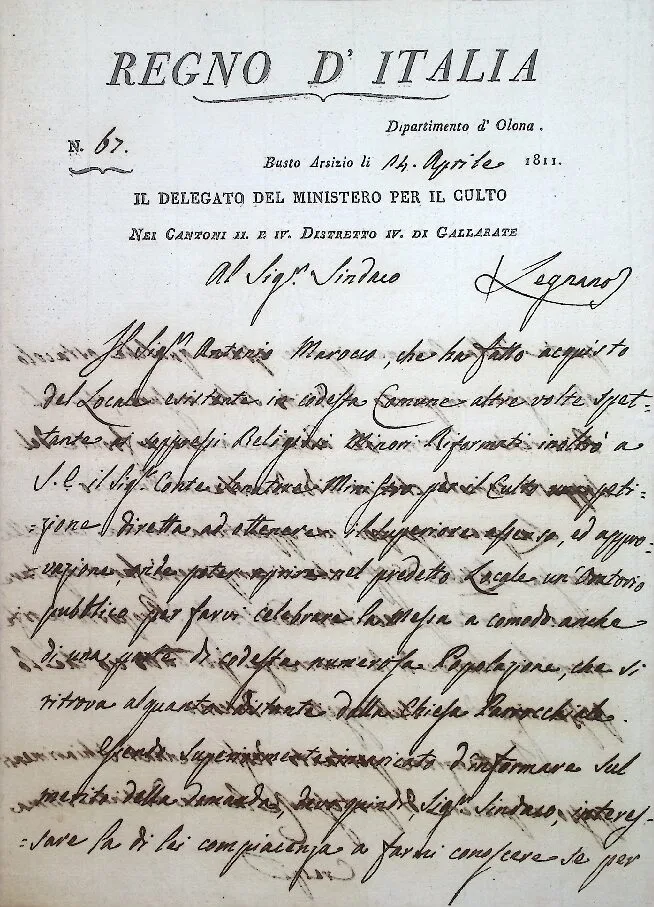 REGNO D' ITALIA
Dipartimento d' Olona.
N. 67.
Busto Arsizio li 14. Aprile 1811.
IL DELEGATO DEL MINISTERO PER IL CULTO
NEI CANTONI II. E IV. DISTRETTO IV. DI GALLARATE
Al Sigr. Sindaco Legnano
Il Sigr. Antonio Marocco, che ha fatto acquisto
del Locale esistente in codesta Comune altre volte spet-
tante ai soppressi Religiosi Minori Riformati inoltrò a
S. E. il Sigr. Conte Senatore Ministro per il Culto peti-
=zione diretta ad ottenere il Superiore assenso, ed appro-
=vazione, onde poter aprire nel predetto Locale un' Oratorio
pubblico per farvi celebrare la Messa a comodo anche
di una parte di codesta numerosa Popolazione, che si
ritrova alquanto distante dalla Chiesa Parrocchiale.
Essendo Superiormente incaricato d'informare sul
merito della domanda, devo quindi, Sigr. Sindaco, interes-
=sare la di lei compiacenza a farmi conoscere se per